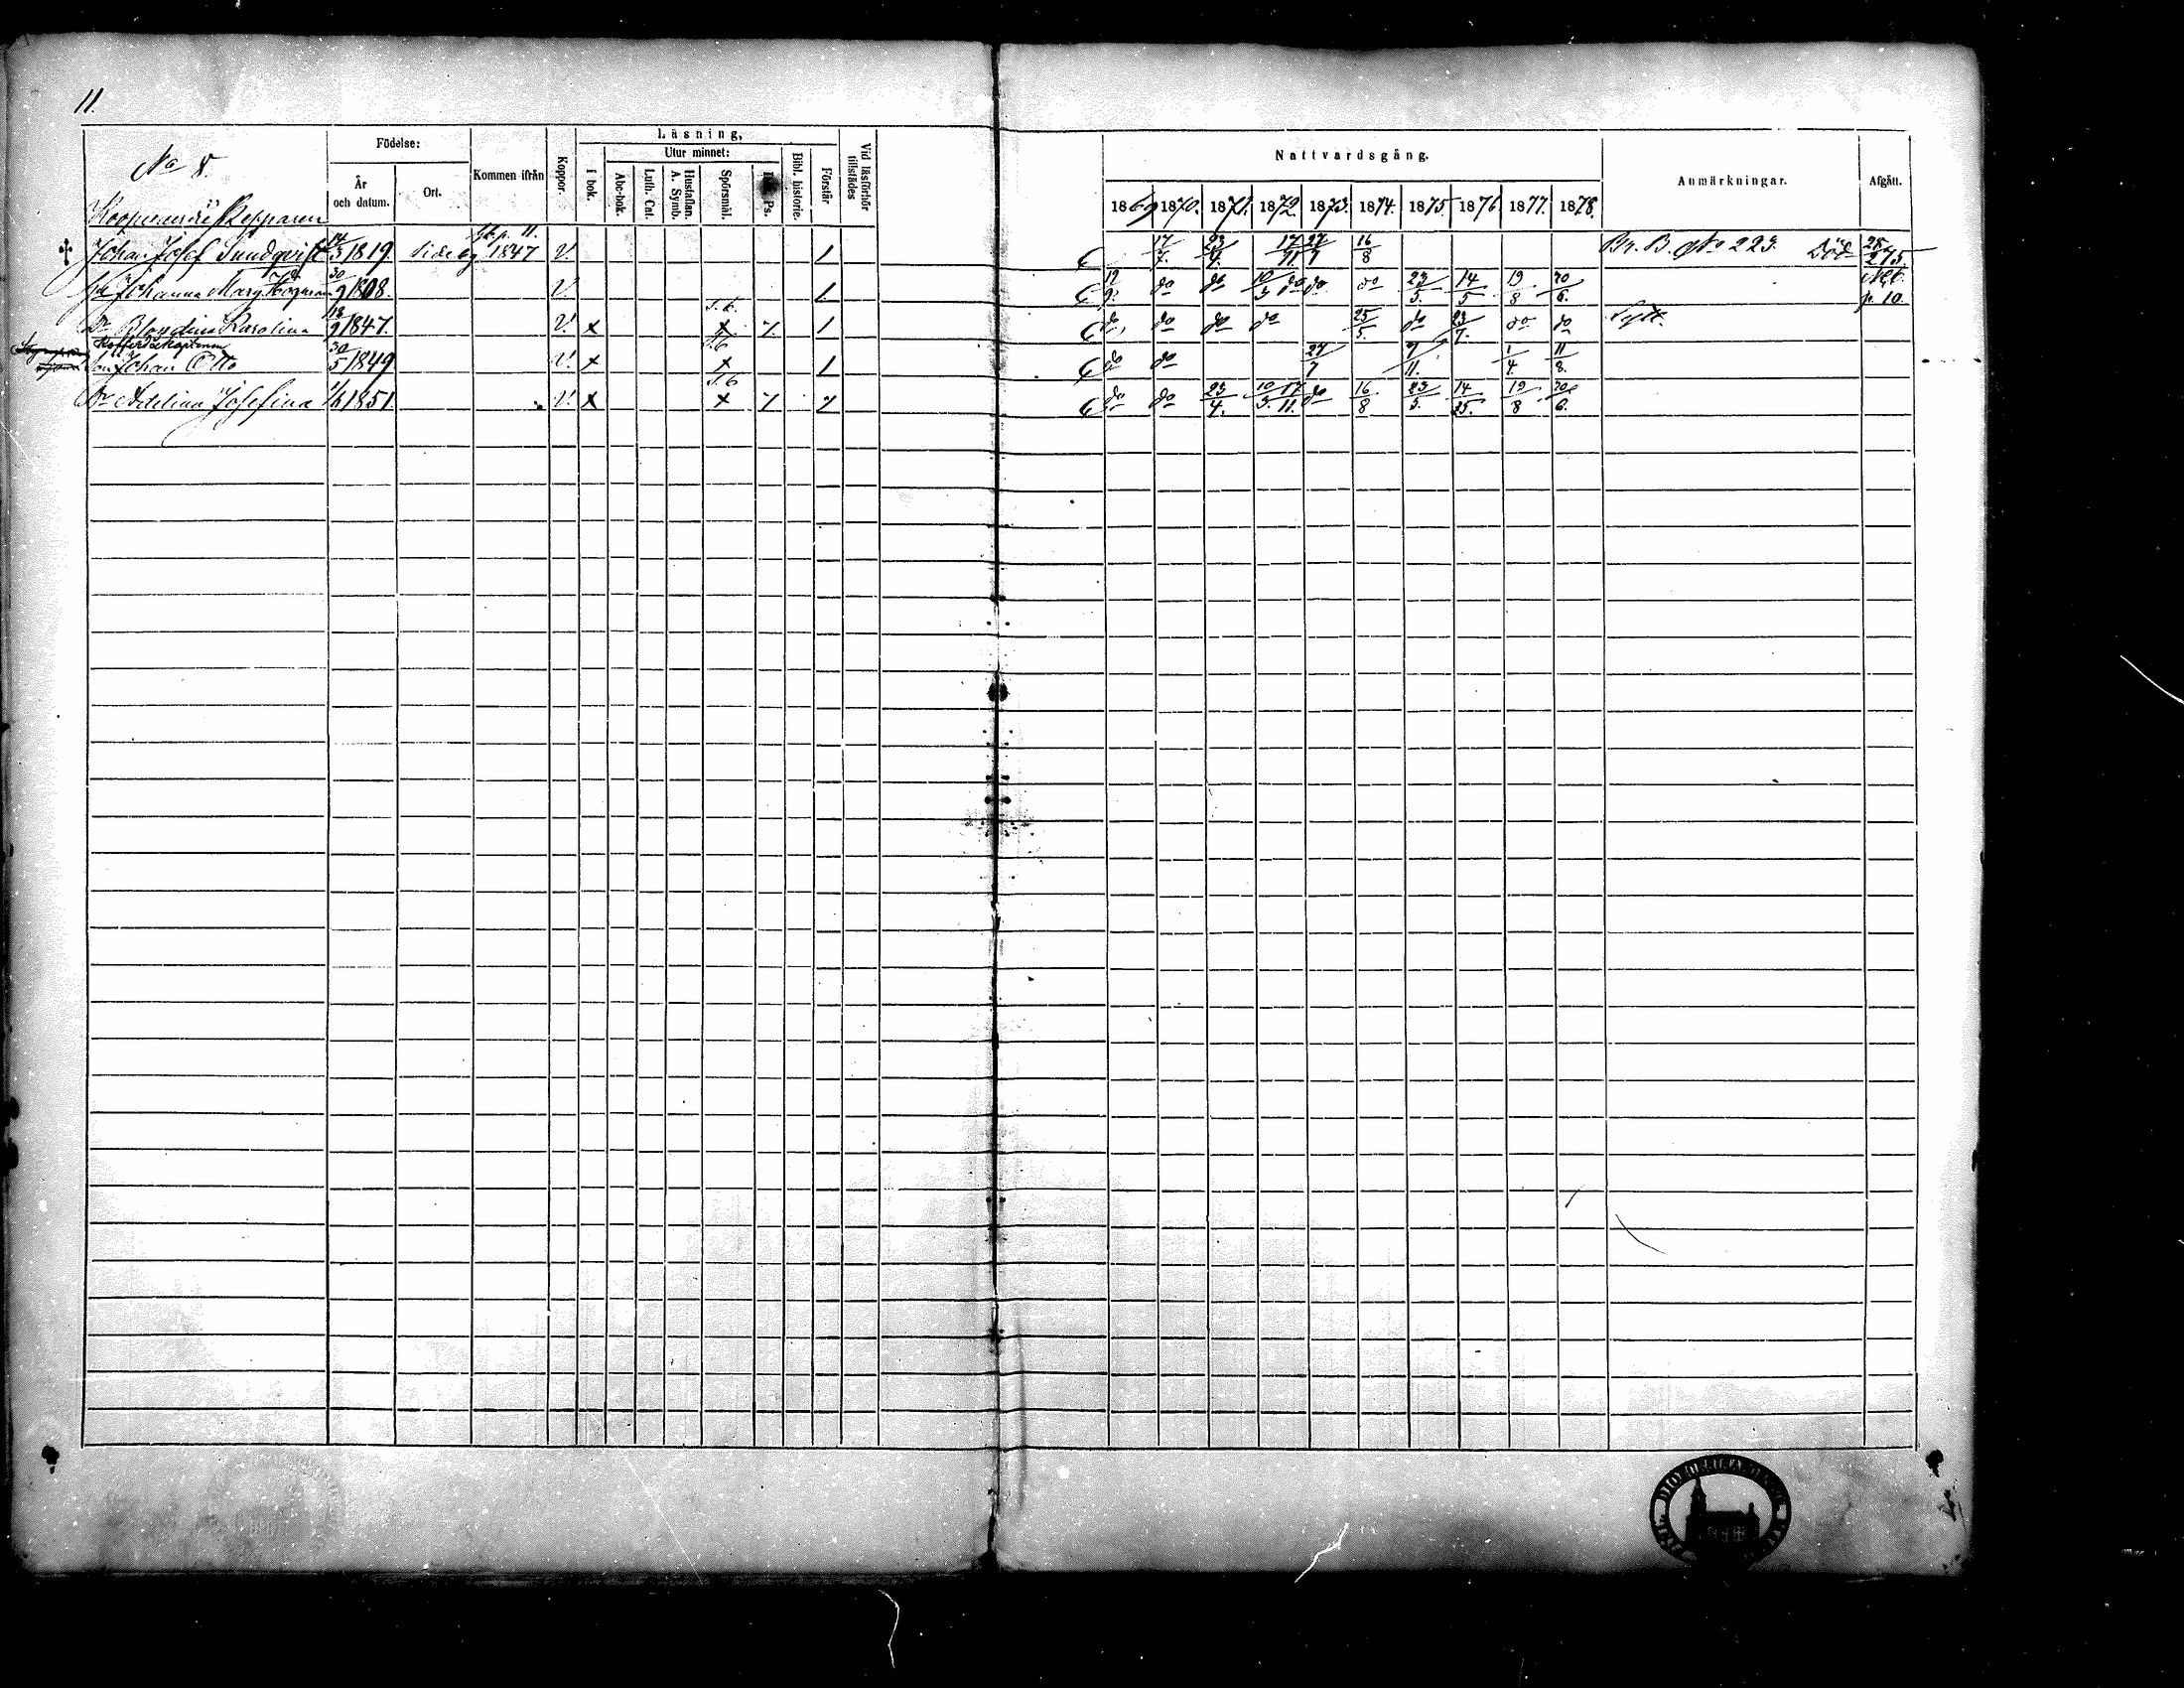 11.
No 8.
Födelse:
År och datum.
Ort.
Kommen ifrån
Koppor.
Läsning,
I bok.
Utur minnet:
Abc-bok.
Luth. Cat.
Hustaflan. A. Symb.
Spörsmål.
Ps.
Bibl. historie.
Förstår
Vid läsförhör tillstädes
Nattvardsgång.
1869 1870. 1871. 1872. 1873. 1874. 1875. 1876 1877. 1878.
Anmärkningar.
Afgått.
Kooperaniskepparen
p. 11.
Johan Josef Sundqvist 14/3 1819. Sideby 1847 V. 1 17/7. 23/4. 17/11. 27/7 16/8 Br. B. No 223. Död 28/2 75.
Johanna Mary 30/9 1808. V. 1 12/9. do do 10/3 do do do 23/5. 14/5 19/8 20/6. p. 10.
S. 6.
Dr Blondina Karolina 13/9 1847. V. x x 1 do do do do 25/5. do 23/7. do do Lytt.
Kofferdikaptenen
S. 6
Son Johan Otto 30/5 1849. V. x x 1 do do 27/7 7/11. 1/4. 11/8.
S. 6
Dr Adelina Josefina 1/6 1851. V. x x do do 23/4. 10/3. 17/11. do 16/8 23/5. 14/25. 19/8 20/6.